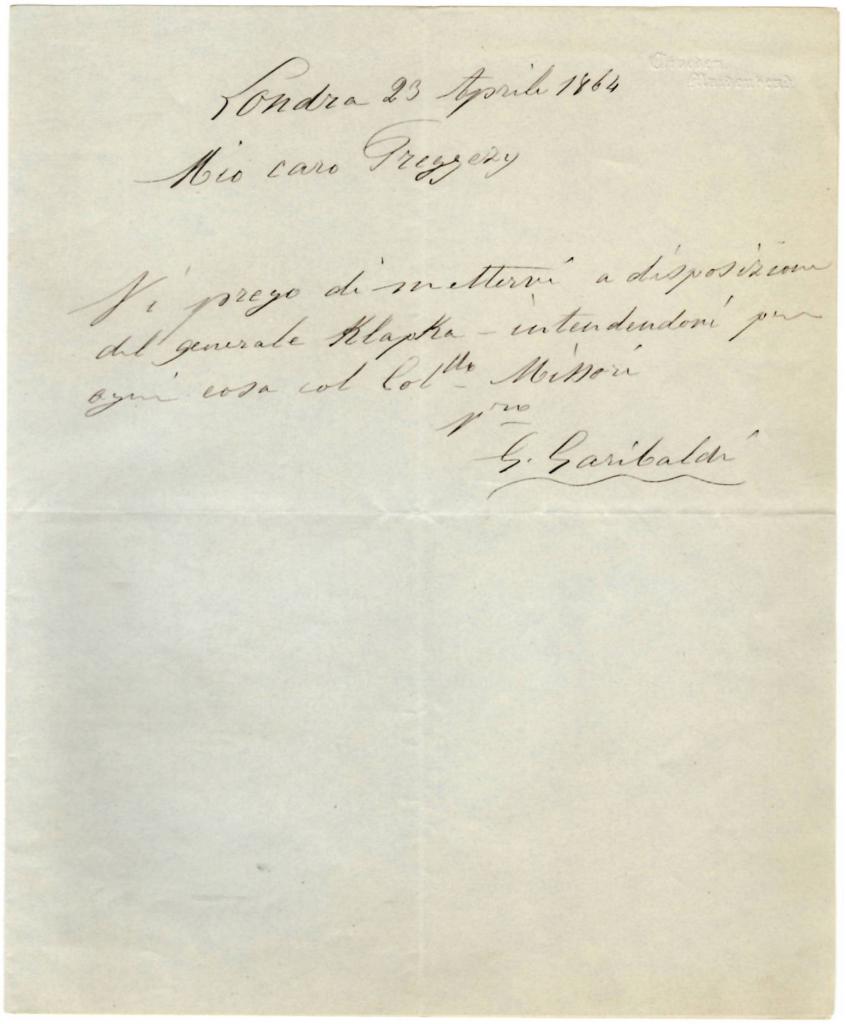 Cliveden
Maidenhead
Londra 23 Aprile 1864
Mio caro Freggezy
Vi prego di mettervi a disposizione
del generale Klapka - intendendovi per
ogni cosa col Col.llo Missori
Vro
G. Garibaldi